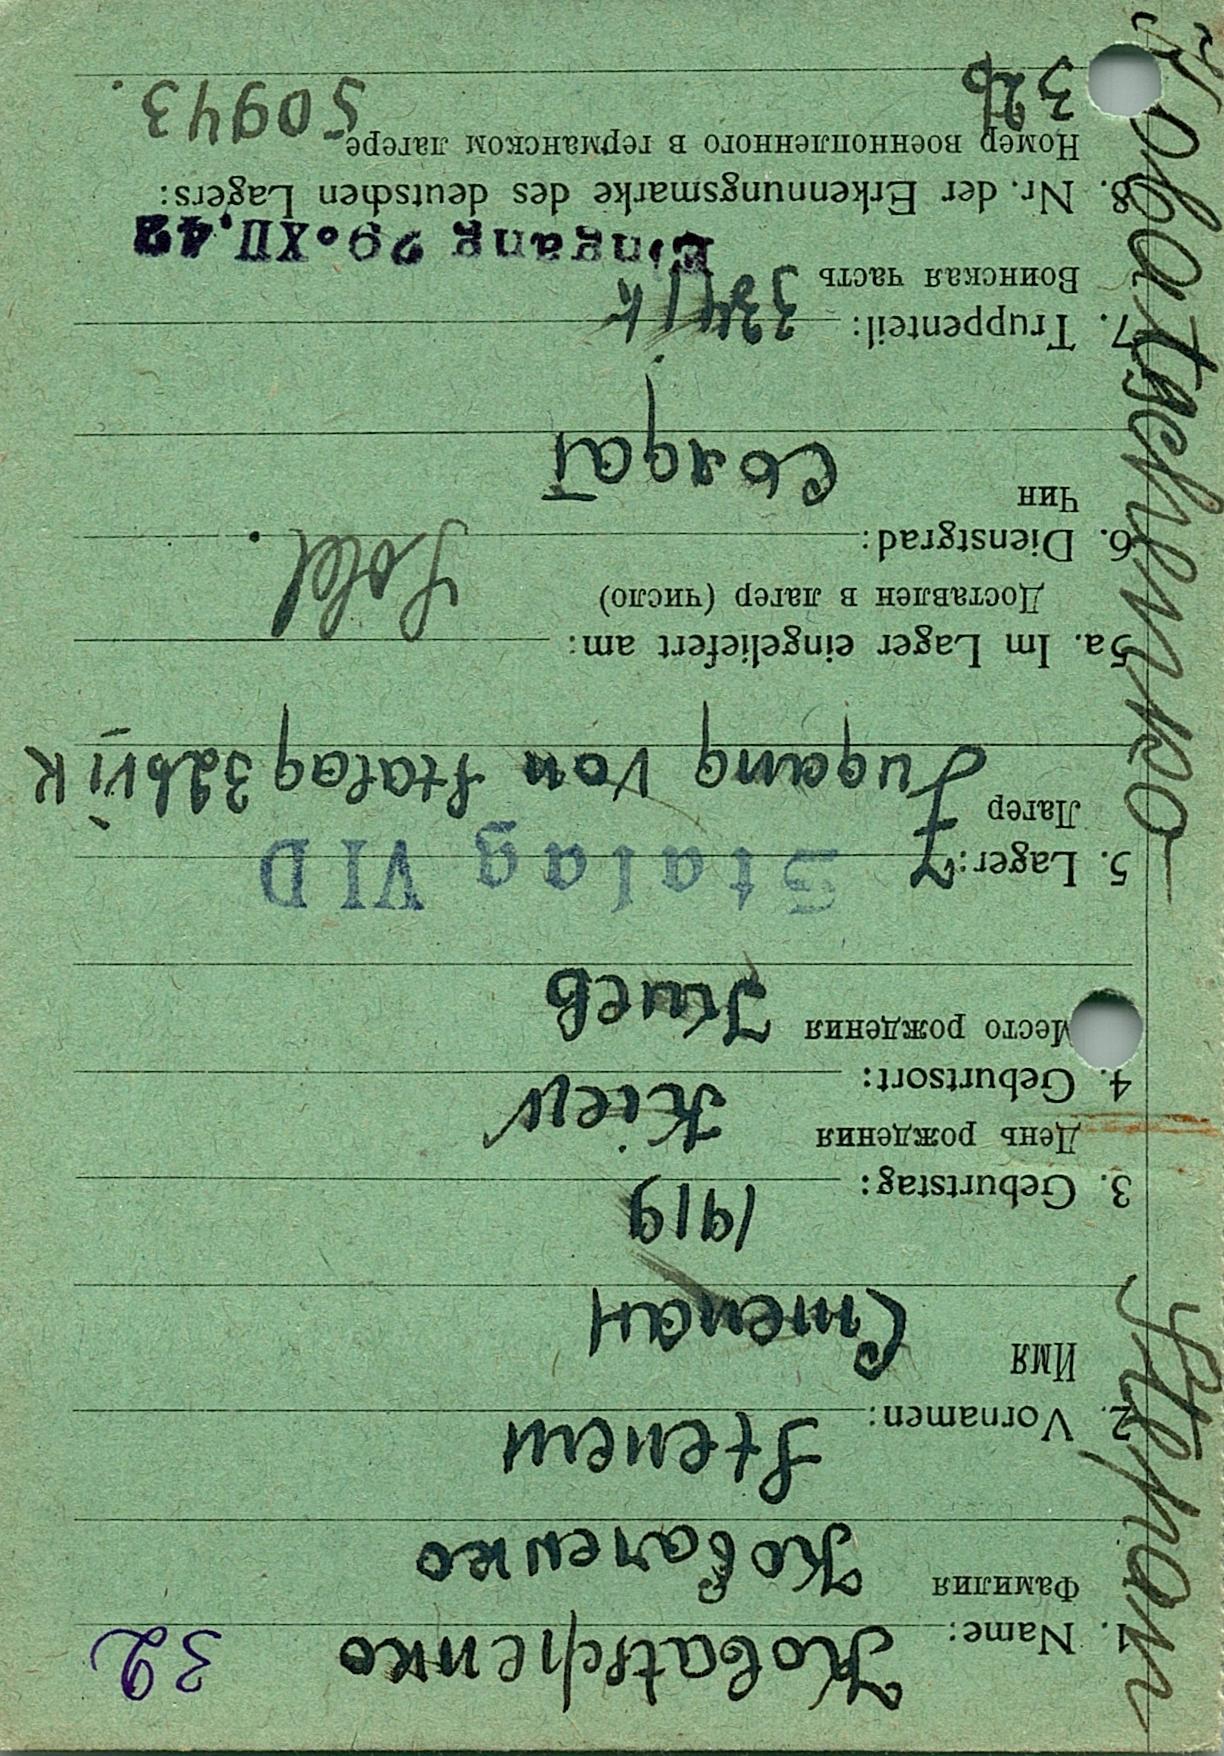 32
1. Name: Kobatschenko
Фамилия Кобаченко
2. Vornamen: Stenem
Имя Степан
3. Geburtstag: 1919
День рождения
4. Geburtsort: Kiew
Место рождения Киев
5. Lager: Stalag VI D
Лагер Zugang von Stalag 326 VI K
5a. Im Lager eingeliefert am:
Доставлен в лагер (число)
6. Dienstgrad: Sold.
Чин Солдат
7. Truppenteil:
Воинская часть
Eingang 29. XII. 42
8. Nr. der Erkennungsmarke des deutschen Lagers:
Номер военнопленного в германском лагере 50943.
326
Kobatschenko Stepan